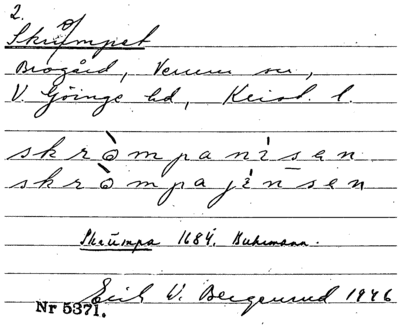 2.
Skrumpet
Brogård, Verum sn,
V. Göinge hd, Krist. l.
skròmpanìsen
skròmpajìnsen
Skrumpa 1684. Buhrmann.
Erik V. Bergenrud 1946
Nr 5371.